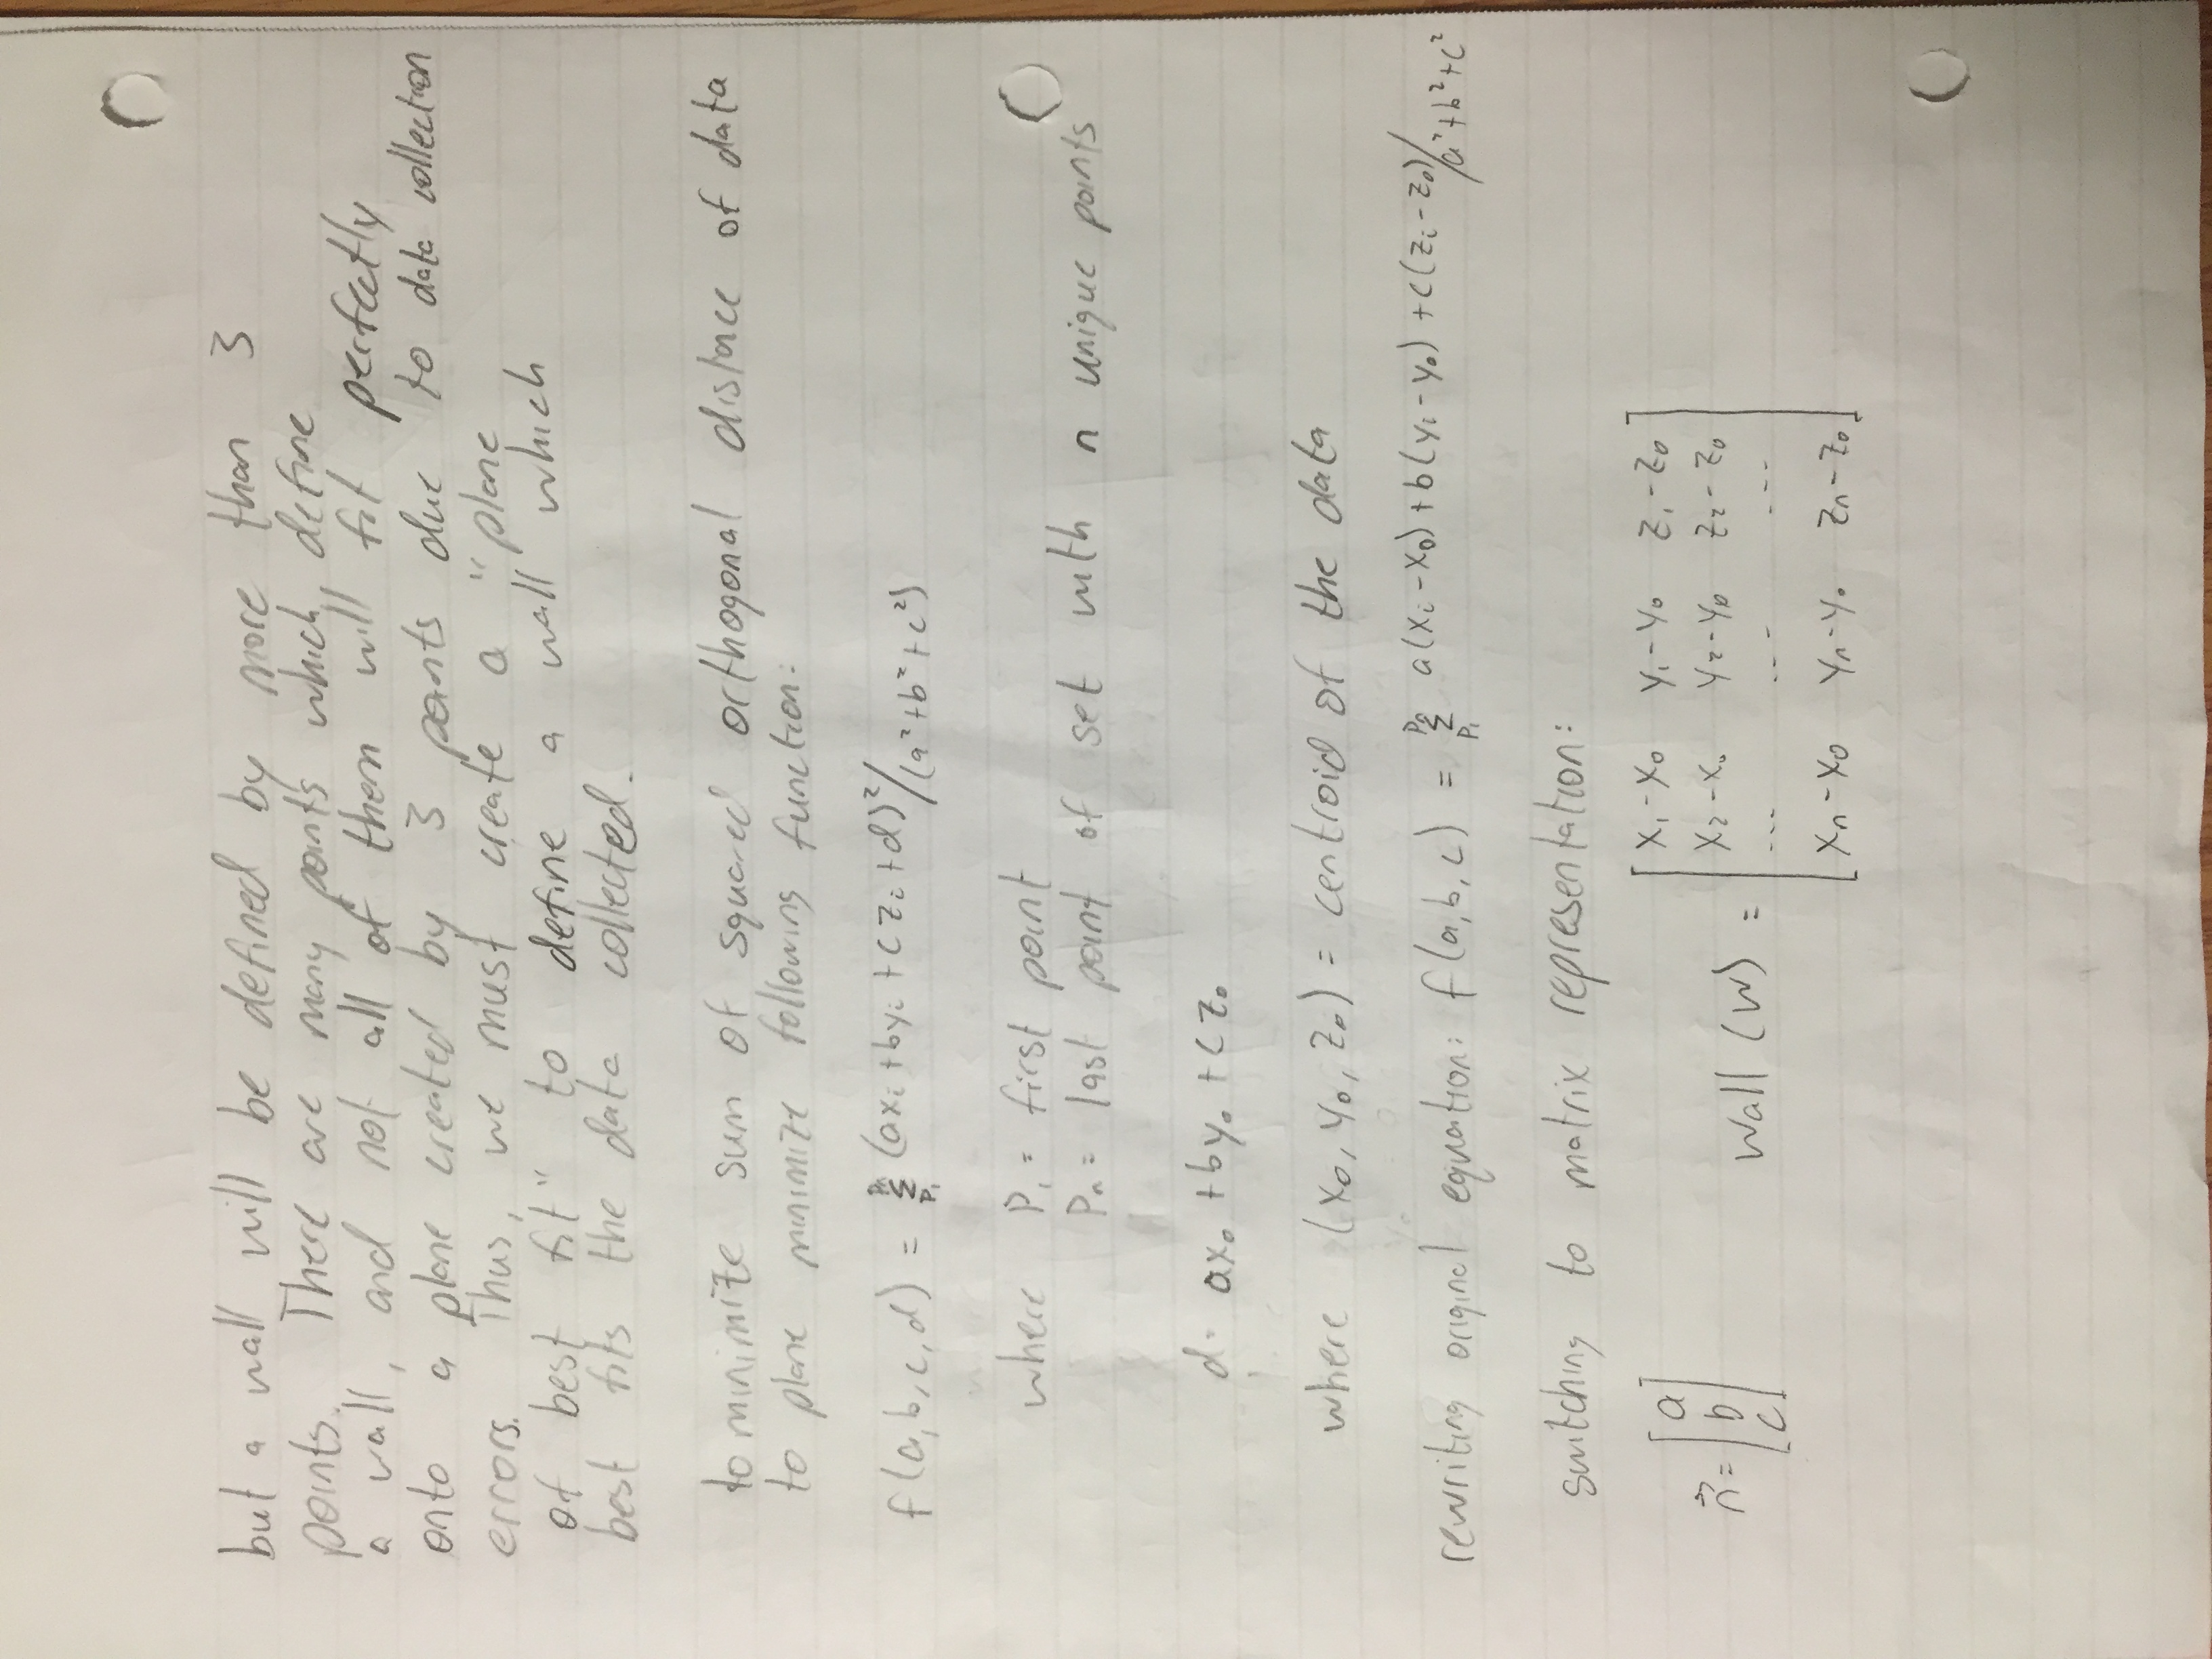 but a wall will be defined by more than 3
points. There are many points which define
a wall, and not all of them will fit perfectly
onto a plane created by 3 points due to data collection
errors. Thus, we must create a "plane
of best fit" to define a wall which
best fits the data collected.
to minimize sum of squared orthogonal distance of data
to plane minimize following function:
f(a,b,c,d) = Σ P₁ (axᵢ + byᵢ + czᵢ + d)²/(a²+b²+c²)
where P₁ = first point
Pₙ = last point of set with n unique points
d = ax₀ + by₀ + cz₀
where (x₀, y₀, z₀) = centroid of the data
rewriting original equation: f(a,b,c) = Pₙ Σ P₁ a(xᵢ-x₀) + b(yᵢ-y₀) + c(zᵢ-z₀)/a²+b²+c²
switching to matrix representation:
n⃗ = [a b c] Wall (W) = [x₁-x₀ y₁-y₀ z₁-z₀
x₂-x₀ y₂-y₀ z₂-z₀
... ... ...
xₙ-x₀ yₙ-y₀ zₙ-z₀]